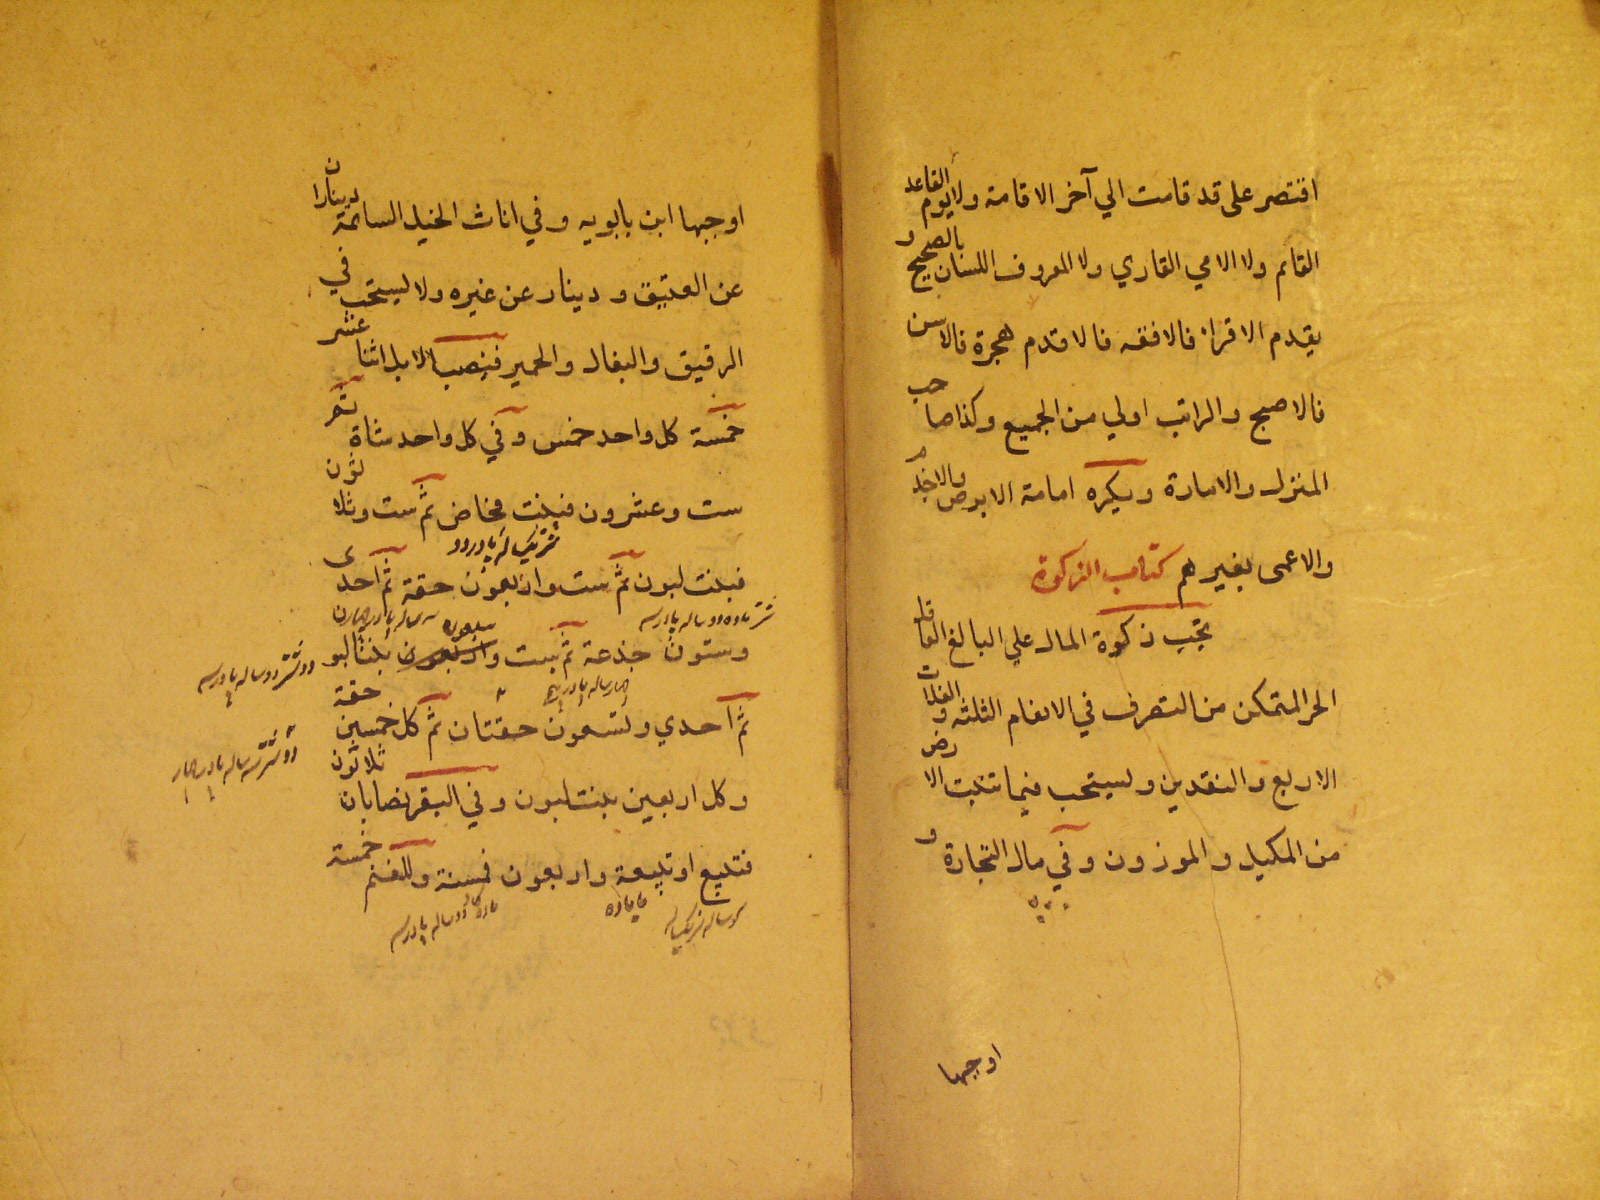 اقتصر على قد قامت الي آخر الاقامة ولا يوم القاعد
القائم ولا الامي القاري ولا المعروف اللسان بالصحيح و
يقدم الاقراء فالافقه فالاقدم هجرة فالاسن
فالاصبح والراتب اولي من الجميع وكذا صاحب
المنزل والامارة ويكره امامة الابرص والاجذم
والاعمى بغيرهم كتاب الزكوة
تجب زكوة المال علي البالغ العاقل
الحر المتمكن من التصرف في الانعام الثلثه و الغلات
الاربع والنقدين ويستحب فيما تنبت الارض
من المكيل والموزون وفي مال التجارة و
اوجبها
اوجبها ابن بابويه وفي اناث الخيل السائمة ديناران
عن العتيق ودينار عن غيره ولا يستحب في
الرقيق والبغال والحمير فنصب الابل اثنا عشر
خمسة كل واحد خمس وفي كل واحد شاة ثم
ست وعشرون فبنت مخاض ثم ست وثلاثون
شتر يكساله پا در دو
فبنت لبون ثم ست واربعون حقة ثم احدى
شتر ماده دو ساله پا در سه
سه ساله پا در چهار
وستون جذعة ثم ست واربعون سبعون بنتا لبو
دو شتر دو ساله پا در سه
چهار ساله پا در پنج
ثم احدي وتسعون حقتان ثم كل خمسين حقة
دو شتر سه ساله پا در چهار
وكل اربعين بنت لبون وفي البقر نصابان ثلاثون
فتبيع او تبيعة واربعون فمسنة وللغنم خمسة
كوساله نر يكساله
يا ماده
ماده دو ساله پا در سه